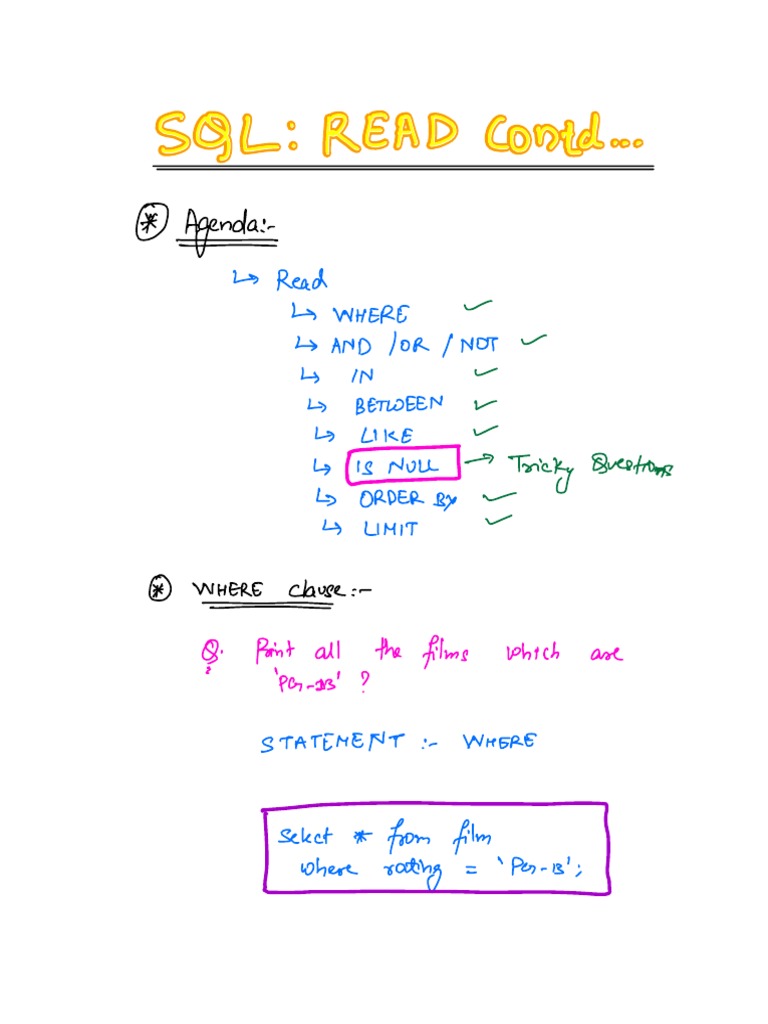 SQL: READ Contd...
* Agenda:-
↳ Read
↳ WHERE ✓
↳ AND / OR / NOT ✓
↳ IN ✓
↳ BETWEEN ✓
↳ LIKE ✓
↳ IS NULL → Tricky Questions
↳ ORDER BY ✓
↳ LIMIT ✓
* WHERE clause:-
Q. Print all the films which are
'PG-13' ?
STATEMENT :- WHERE
Select * from film
where rating = 'PG-13';